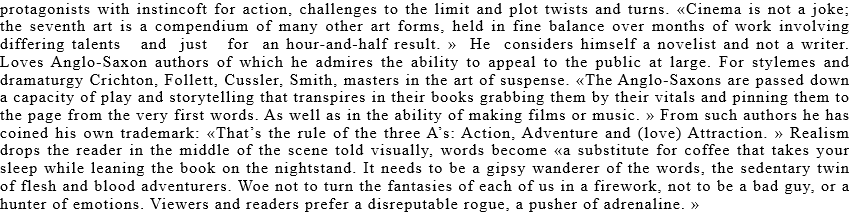 protagonists with instincoft for action, challenges to the limit and plot twists and turns. «Cinema is not a joke;
the seventh art is a compendium of many other art forms, held in fine balance over months of work involving
differing talents and just for an hour-and-half result. » He considers himself a novelist and not a writer.
Loves Anglo-Saxon authors of which he admires the ability to appeal to the public at large. For stylemes and
dramaturgy Crichton, Follett, Cussler, Smith, masters in the art of suspense. «The Anglo-Saxons are passed down
a capacity of play and storytelling that transpires in their books grabbing them by their vitals and pinning them to
the page from the very first words. As well as in the ability of making films or music. » From such authors he has
coined his own trademark: «That's the rule of the three A's: Action, Adventure and (love) Attraction. » Realism
drops the reader in the middle of the scene told visually, words become «a substitute for coffee that takes your
sleep while leaning the book on the nightstand. It needs to be a gipsy wanderer of the words, the sedentary twin
of flesh and blood adventurers. Woe not to turn the fantasies of each of us in a firework, not to be a bad guy, or a
hunter of emotions. Viewers and readers prefer a disreputable rogue, a pusher of adrenaline. »